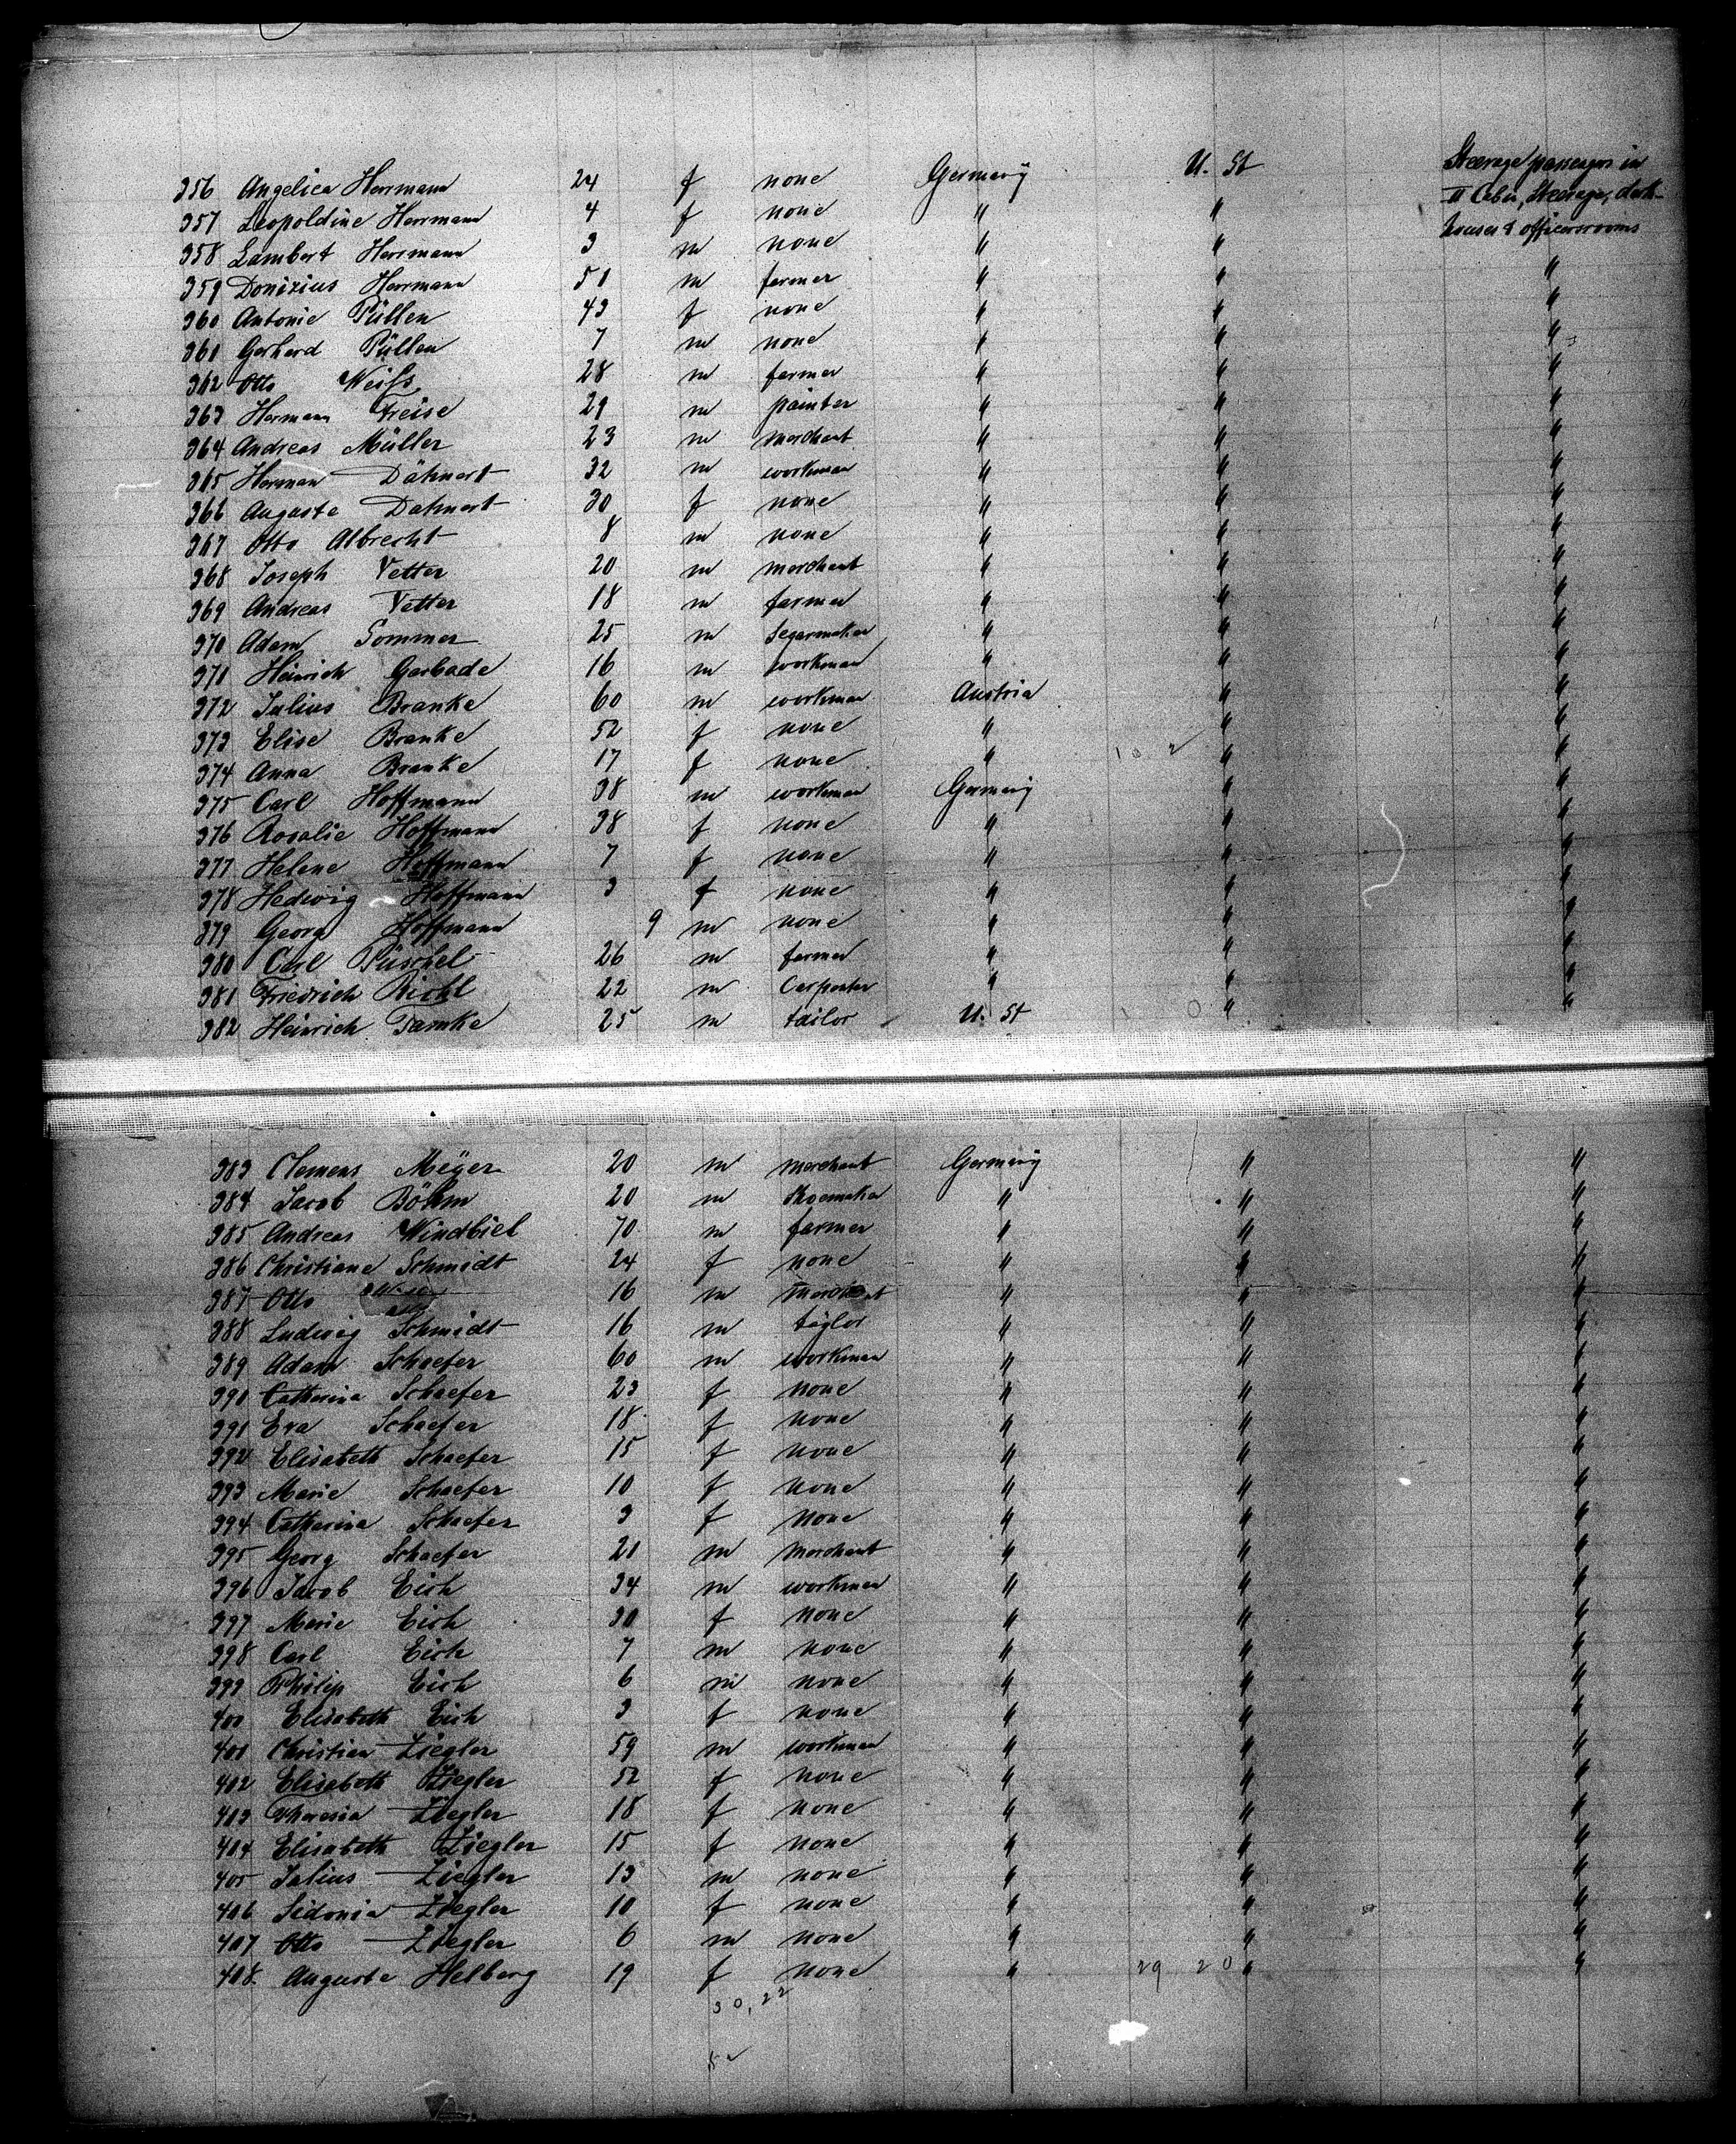 356 Angelica Herrmann 24 f none Germany U. St Steerage passengers in
II Cabin, Steerage, deck-
houses & officersrooms
357 Leopoldine Herrmann 4 f none " "
358 Lambert Herrmann 3 m none " "
359 Donizius Herrmann 51 m farmer " " "
360 Antonie Püllen 43 f none " " "
361 Gerhard Püllen 7 m none " " "
362 Otto Weiß 28 m farmer " " "
363 Hermann Freise 29 m painter " " "
364 Andreas Müller 23 m merchant " " "
365 Herman Dähnert 32 m workman " " "
366 Auguste Dahnert 30 f none " " "
367 Otto Albrecht 8 m none " " "
368 Joseph Vetter 20 m merchant " " "
369 Andreas Vetter 18 m farmer " " "
370 Adam Sommer 25 m Segarmaker " " "
371 Heinrich Garbade 16 m workman " " "
372 Julius Branke 60 m workman Austria " "
373 Elise Branke 52 f none " " "
374 Anna Branke 17 f none " " "
375 Carl Hoffmann 38 m workman Germany " "
376 Rosalie Hoffmann 38 f none " " "
377 Helene Hoffmann 7 f none " " "
378 Hedwig Hoffmann 3 f none " " "
379 Georg Hoffmann 9 m none " " "
380 Carl Püschel 26 m farmer " " "
381 Friedrich Bichl 22 m Carpenter " " "
382 Heinrich Tamke 25 m tailor U. St " "
383 Clemens Meÿer 20 m merchant Germany " "
384 Jacob Böhm 20 m Shoemaker " " "
385 Andreas Windbiel 70 m farmer " " "
386 Christiane Schmidt 24 f none " " "
387 Otto 16 m merchant " " "
388 Ludwig Schmidt 16 m taylor " " "
389 Adam Schaefer 60 m workman " " "
390 Catherina Schaefer 23 f none " " "
391 Eva Schaefer 18 f none " " "
392 Elisabeth Schaefer 15 f none " " "
393 Marie Schaefer 10 f none " " "
394 Catherina Schaefer 3 f none " " "
395 Georg Schaefer 21 m merchant " " "
396 Jacob Eich 34 m workman " " "
397 Marie Eich 30 f none " " "
398 Carl Eich 7 m none " " "
399 Philip Eich 6 m none " " "
400 Elisabeth Eich 3 f none " " "
401 Christian Ziegler 59 m workman " " "
402 Elisabeth Ziegler 52 f none " " "
403 Theresia Ziegler 18 f none " " "
404 Elisabeth Ziegler 15 f none " " "
405 Julius Ziegler 13 m none " " "
406 Sidonia Ziegler 10 f none " " "
407 Otto Ziegler 6 m none " " "
408. Auguste Helberg 19 f none " 29 20 " "
30,22
52